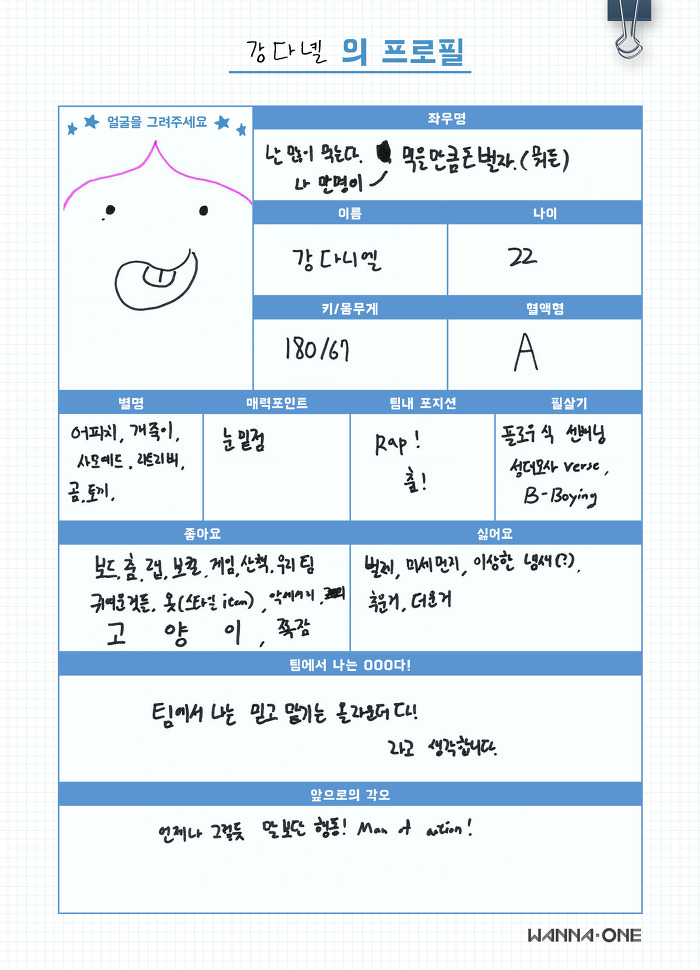 강다넬 의 프로필
얼굴을 그려주세요
좌우명
난 많이 먹는다. 먹을만큼 돈 벌자. (뭐든)
나 만명이
이름
나이
강다니엘
22
키/몸무게
혈액형
180/67
A
별명
매력포인트
팀내 포지션
필살기
어피치, 개죽이,
사모예드, 리트리버,
곰, 토끼,
눈 밑점
Rap!
춤!
플로우식 썬버닝
성더모사 verse,
B-Boying
좋아요
싫어요
보드, 춤, 랩, 보컬, 게임, 산책, 우리팀
귀여운것들, 옷(스타일 icon), 악세서리,
고양이, 쪽잠
벌레, 미세먼지, 이상한 냄새(?),
추운거, 더운거
팀에서 나는 OOO다!
팀에서 나는 믿고 맡기는 올라운더다!
라고 생각합니다.
앞으로의 각오
언제나 그렇듯 말보단 행동! Man of action!
WANNA·ONE